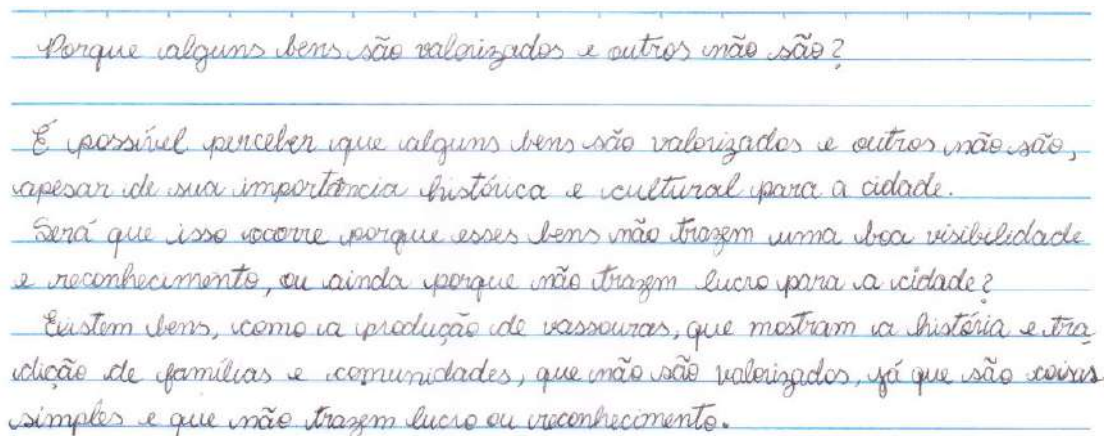 Porque alguns bens são valorizados e outros não são?
É possível perceber que alguns bens são valorizados e outros não são,
apesar de sua importância histórica e cultural para a cidade.
Será que isso ocorre porque esses bens não trazem uma boa visibilidade
e reconhecimento, ou ainda porque não trazem lucro para a cidade?
Existem bens, como a produção de vassouras, que mostram a história e tra
dição de famílias e comunidades, que não são valorizados, já que são coisas
simples e que não trazem lucro ou reconhecimento.